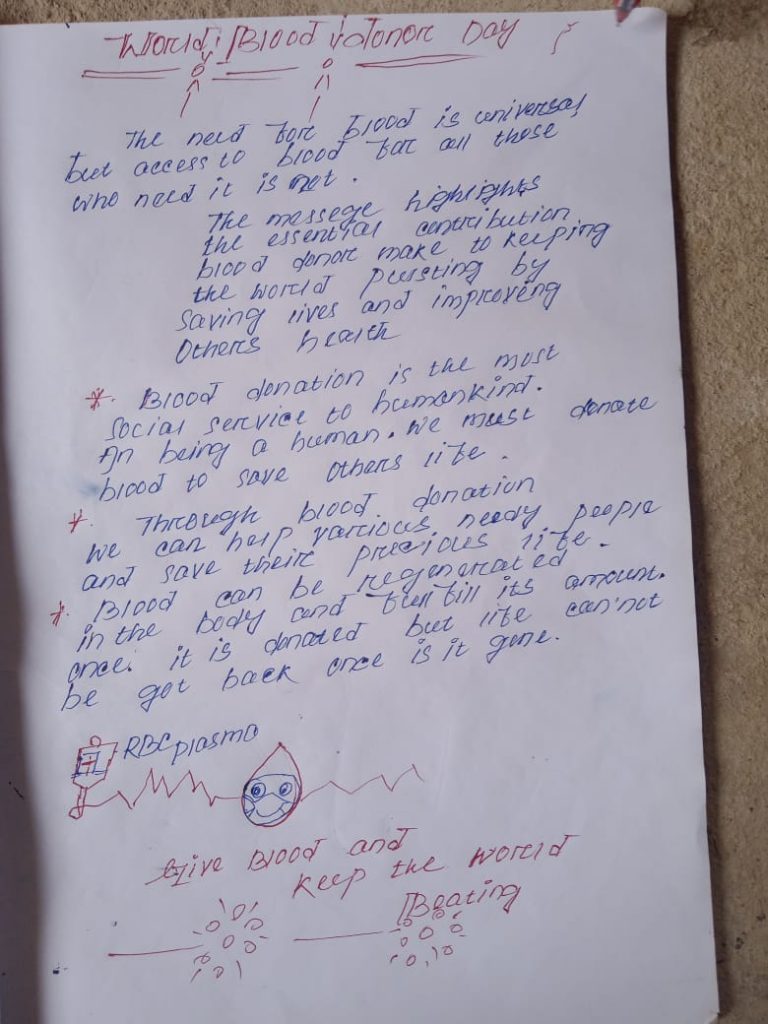 World Blood donor Day
The need for blood is universal
but access to blood for all those
who need it is not.
The messege highlights
the essential contribution
blood donor make to keeping
the world pulsting by
saving lives and improveng
others health
* Blood donation is the most
social service to humankind.
An being a human. we must donate
blood to save others life.
* Through blood donation
we can help various needy people
and save their precious life.
* Blood can be regenerated
in the body and full fill its amount.
once. it is donated but life can'not
be got back once is it gone.
RBC plasma
Give Blood and
keep the world
Beating